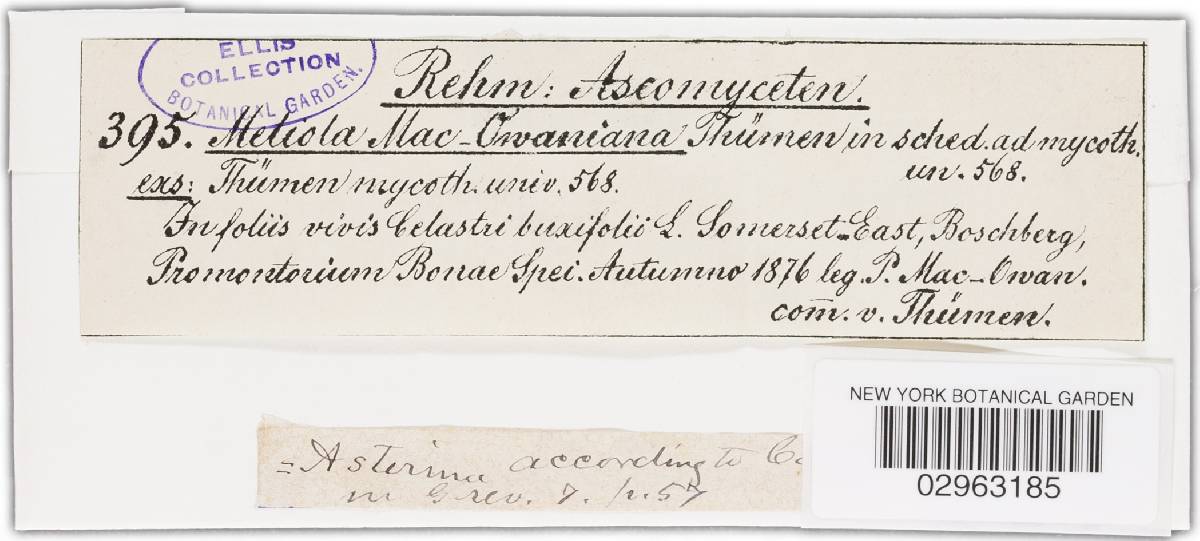 ELLIS
COLLECTION
BOTANICAL GARDEN.
Rehm: Ascomyceten.
395. Meliola Mac-Owaniana Thümen in sched. ad mycoth.
un. 568.
exs: Thümen mycoth. univ. 568.
In foliis vivis Celastri buxifolii L. Somerset-East, Boschberg,
Promontorium Bonae Spei. Autumno 1876 leg. P. Mac-Owan.
com̄. v. Thümen.
= Asterina according to
in Grev. 7. p. 57
NEW YORK BOTANICAL GARDEN
02963185